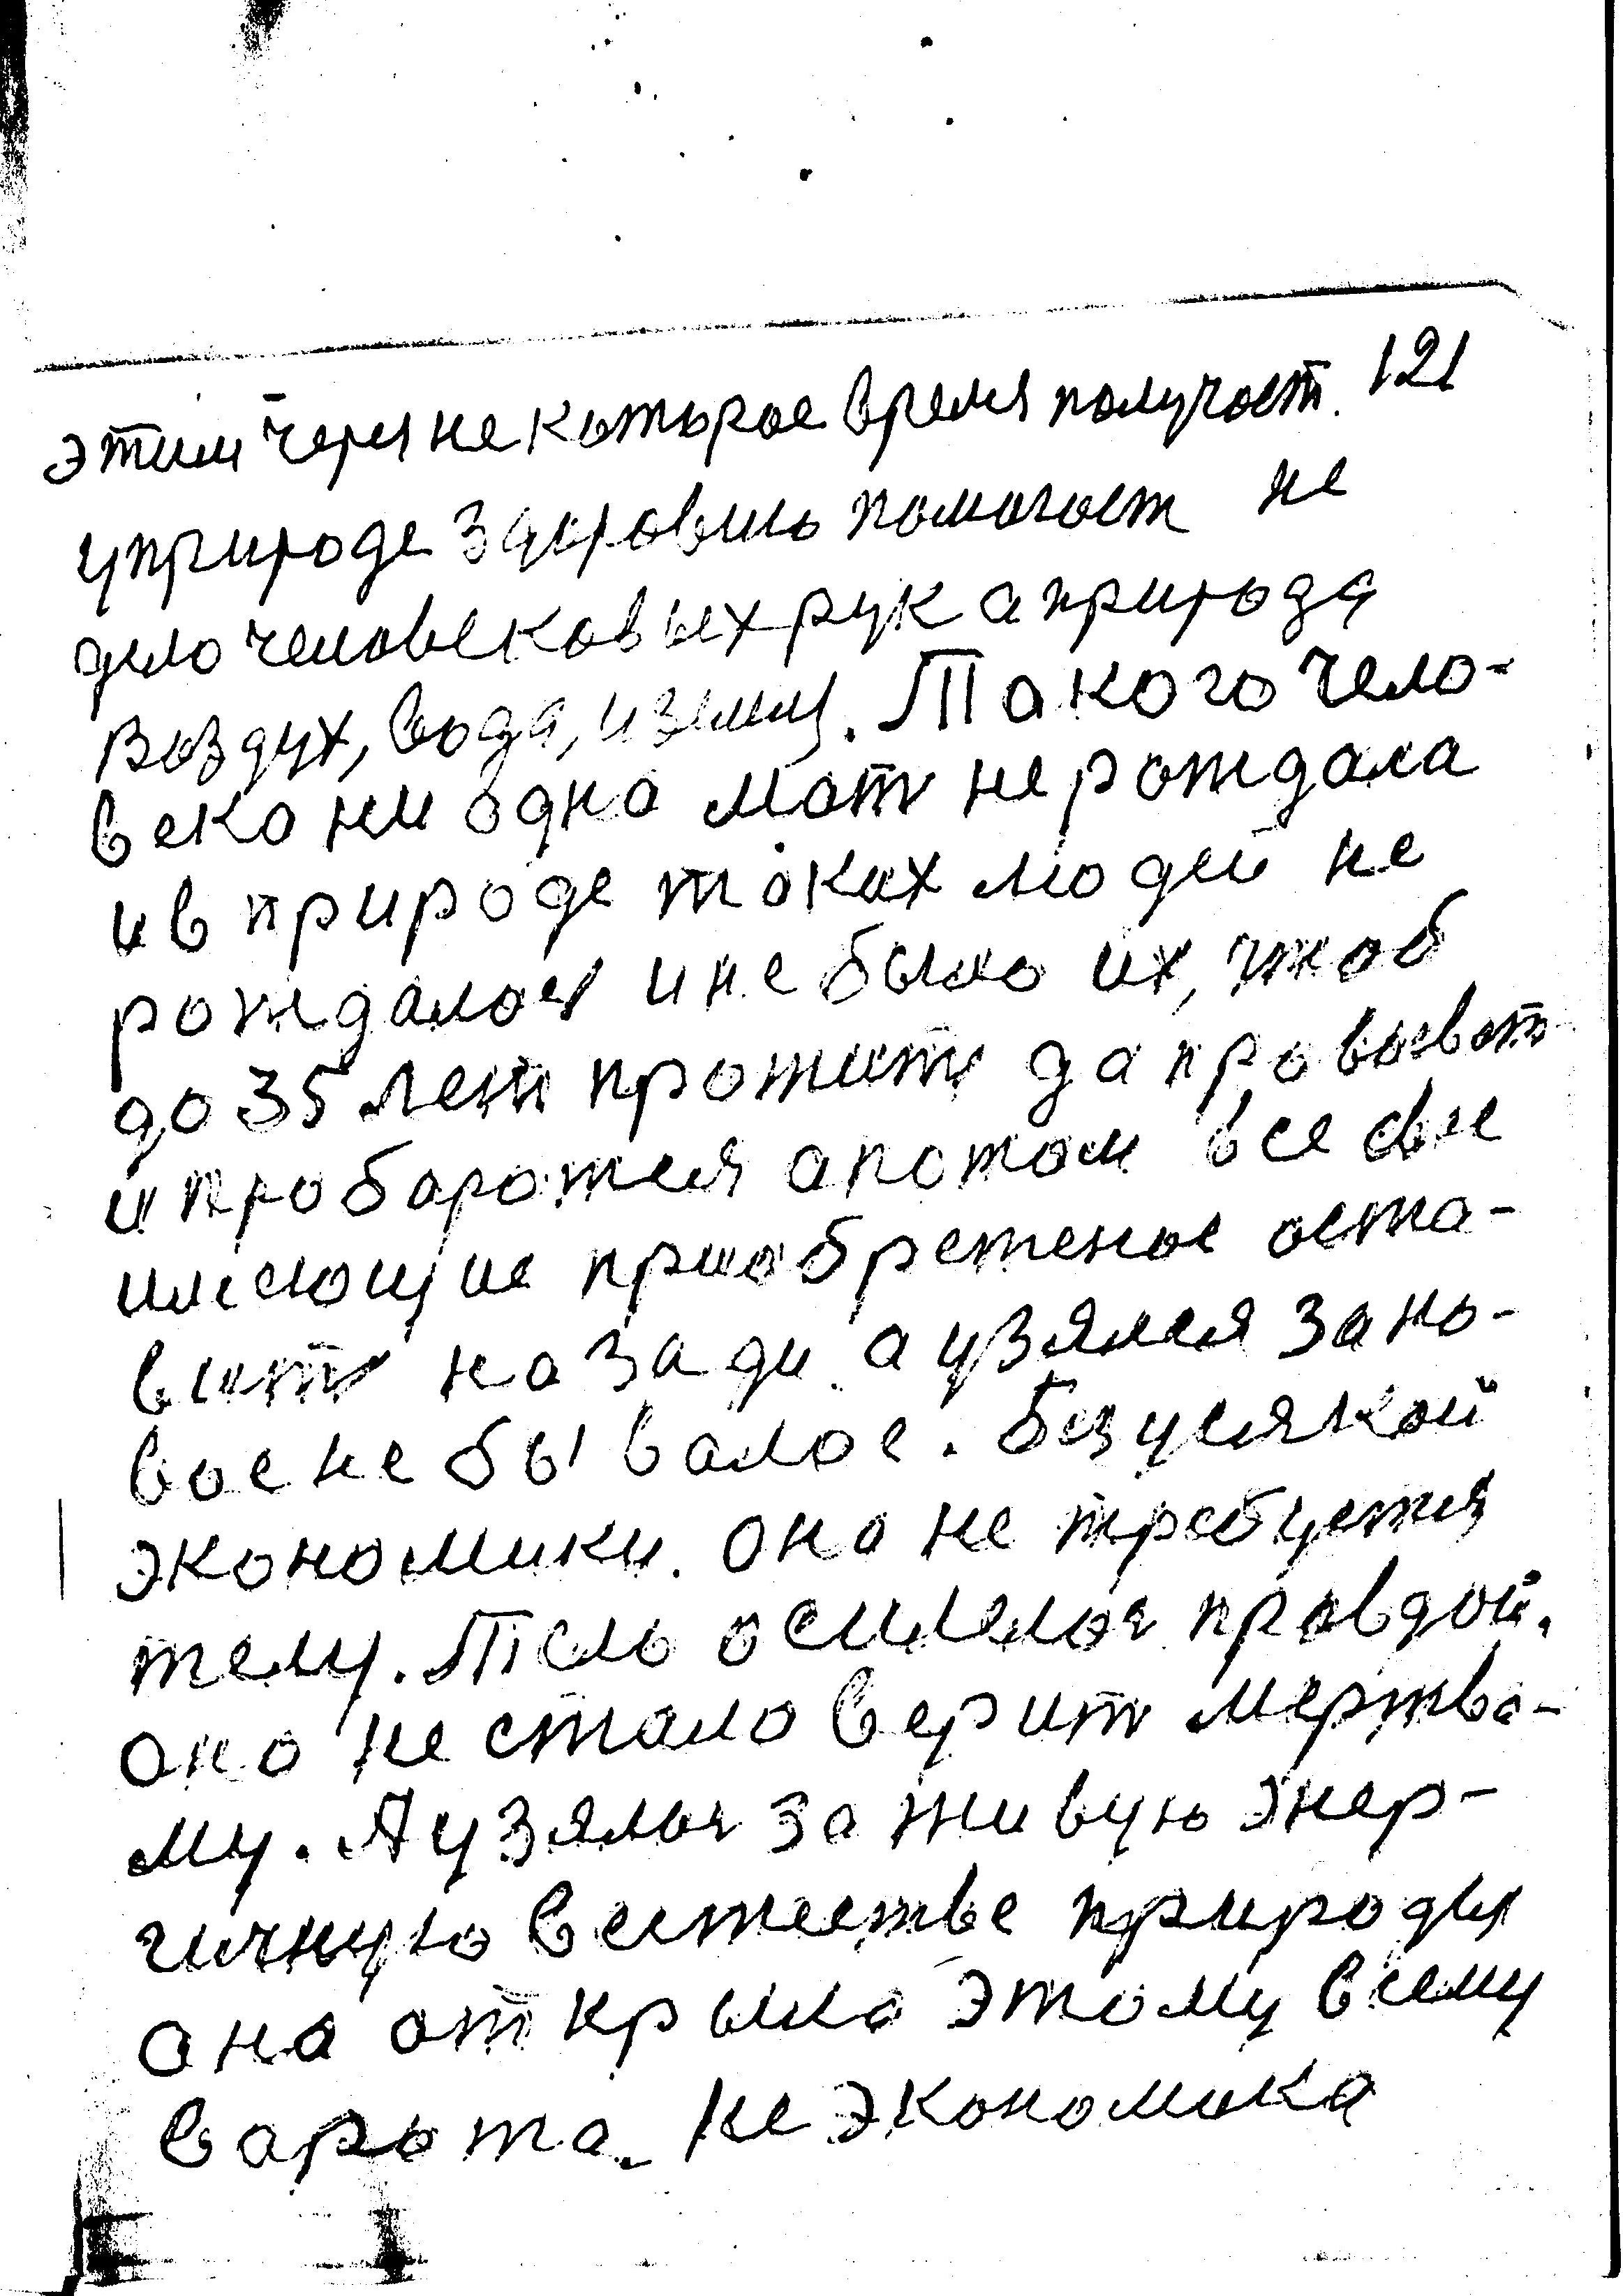 этим через некоторое время получает. 121
у природе здоровию помогает не
дело человековых рук а природа
воздух, вода, и земля. Такого чело-
века ни одна мать не рождала
и в природе таких людей не
рождалося и не было их, чтоб
до 35 лет прожить да провоеват
и проборотся а потом все свое
имеющие приобретеное оста-
вить назади. а узялся за но-
вое не бывалое. Без усякой
экономики. она не требуется
телу. Тело осилелося правдой.
оно не стало верить мертво-
му. А узялося за живую энер-
гичную в естестве природы
она открыла этому всему
варота. Не экономика